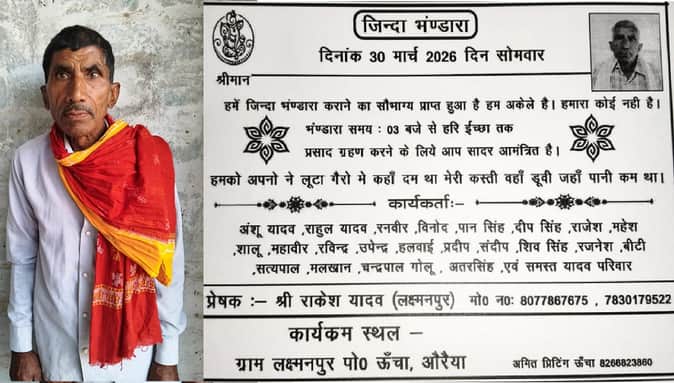 जिन्दा भंण्डारा
दिनांक 30 मार्च 2026 दिन सोमवार
श्रीमान
हमें जिन्दा भंण्डारा कराने का सौभाग्य प्राप्त हुआ है हम अकेले है। हमारा कोई नही है।
भंण्डारा समय : 03 बजे से हरि ईच्छा तक
प्रसाद ग्रहण करने के लिये आप सादर आमंत्रित है।
हमको अपनो ने लूटा गैरो मे कहाँ दम था मेरी कस्ती वहाँ डूवी जहाँ पानी कम था।
कार्यकर्ताः–
अंशू यादव ,राहुल यादव ,रनवीर ,विनोद ,पान सिंह ,दीप सिंह ,राजेश ,महेश
,शालू ,महावीर ,रविन्द्र ,उपेन्द्र ,हलवाई ,प्रदीप ,संदीप ,शिव सिंह ,रजनेश ,बीटी
,सत्यपाल ,मलखान ,चन्द्रपाल गोलू , अतरसिंह ,एवं समस्त यादव परिवार
प्रेषक :– श्री राकेश यादव (लक्ष्मनपुर) मो0 नः 8077867675 , 7830179522
कार्यकम स्थल –
ग्राम लक्ष्मनपुर पो0 ऊँचा, औरैया
अमित प्रिटिंग ऊँचा 8266823860